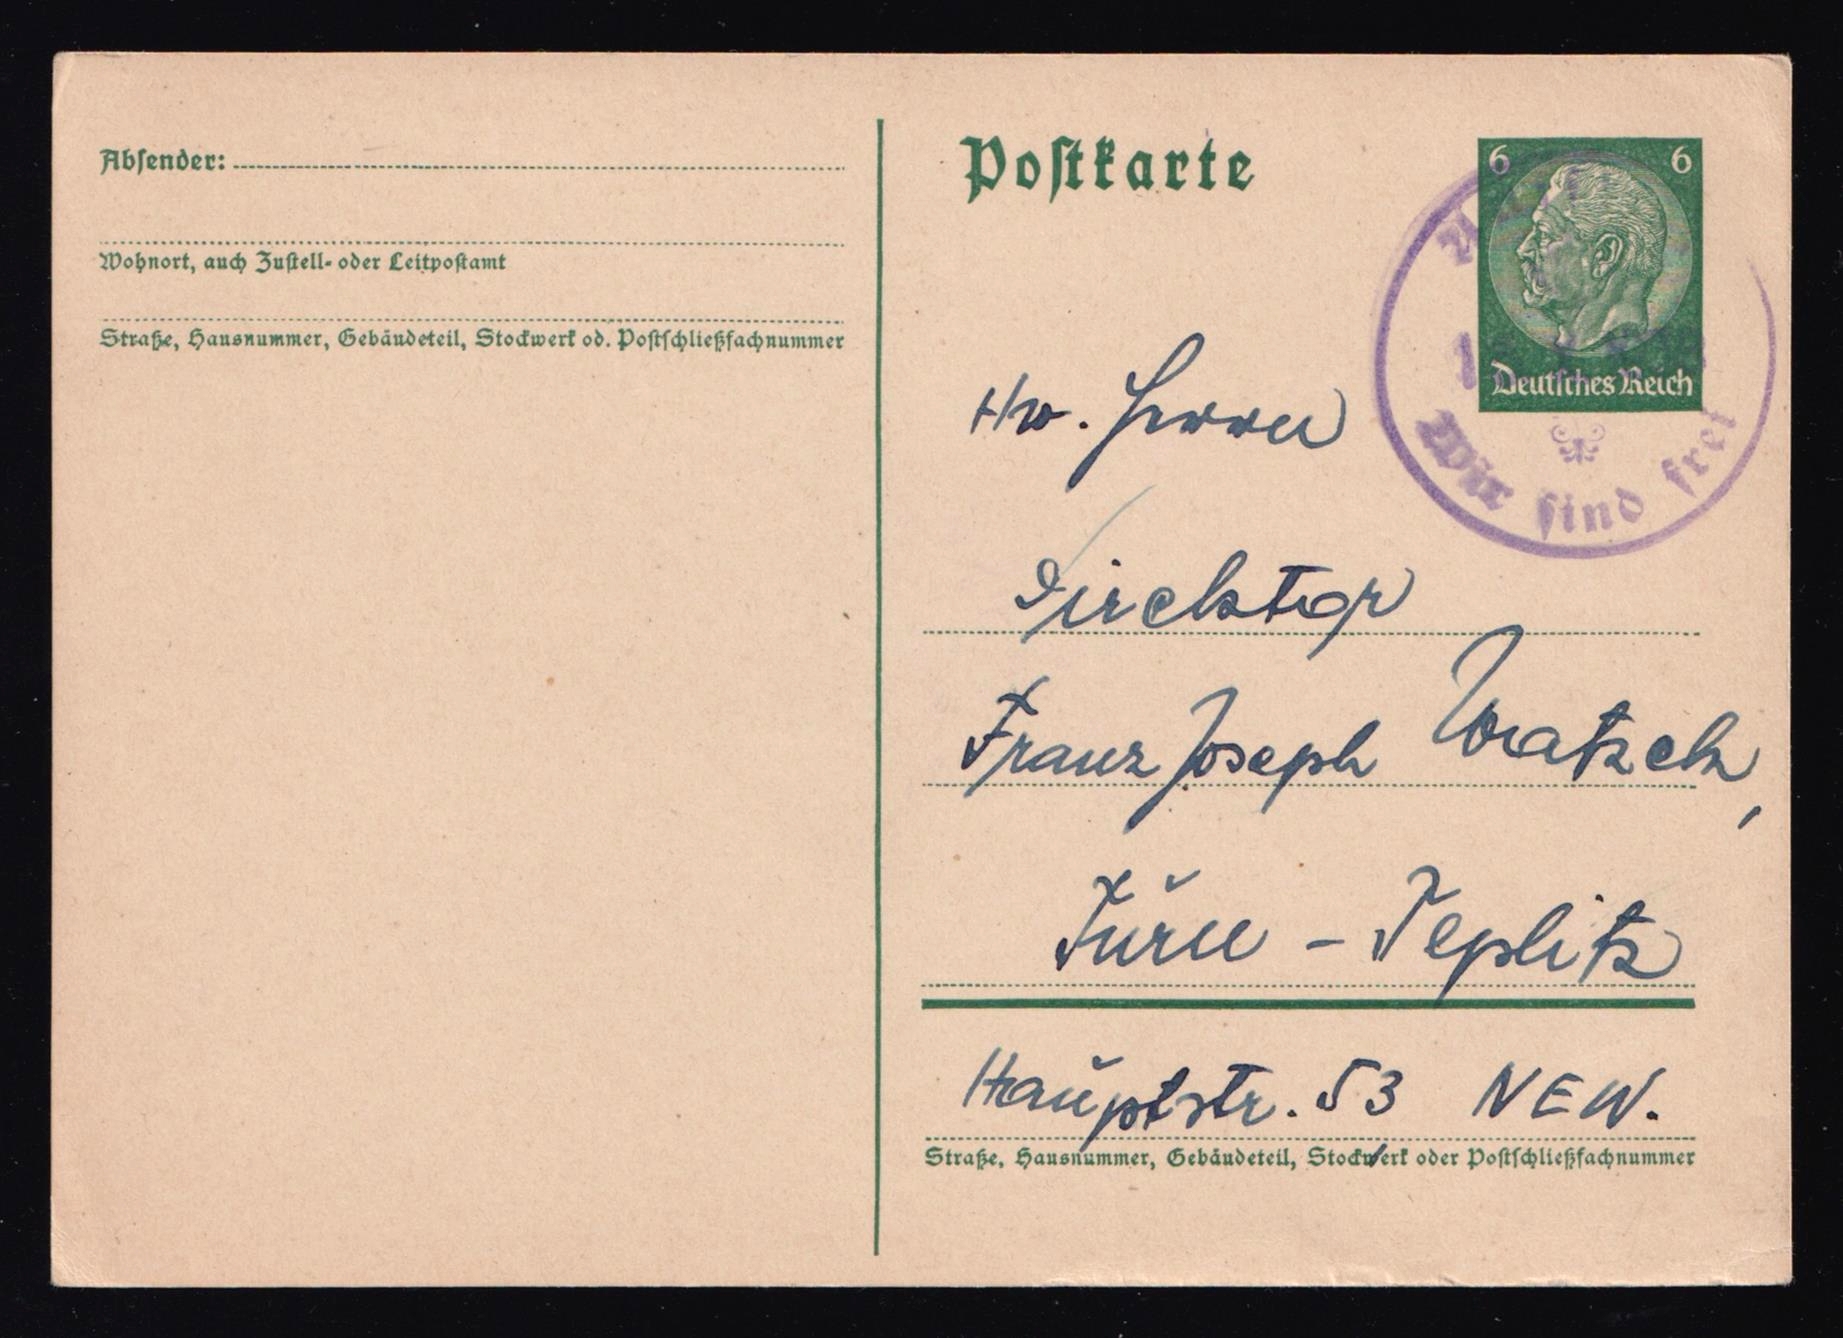 Absender:
Wohnort, auch Zustell- oder Leitpostamt
Straße, Hausnummer, Gebäudeteil, Stockwerk od. Postschließfachnummer
Postkarte
6 6
Deutsches Reich
Wir sind frei
Herrn
Direktor
Franz Joseph Watzek,
Turn - Teplitz
Hauptstr. 53 NEW.
Straße, Hausnummer, Gebäudeteil, Stockwerk oder Postschließfachnummer